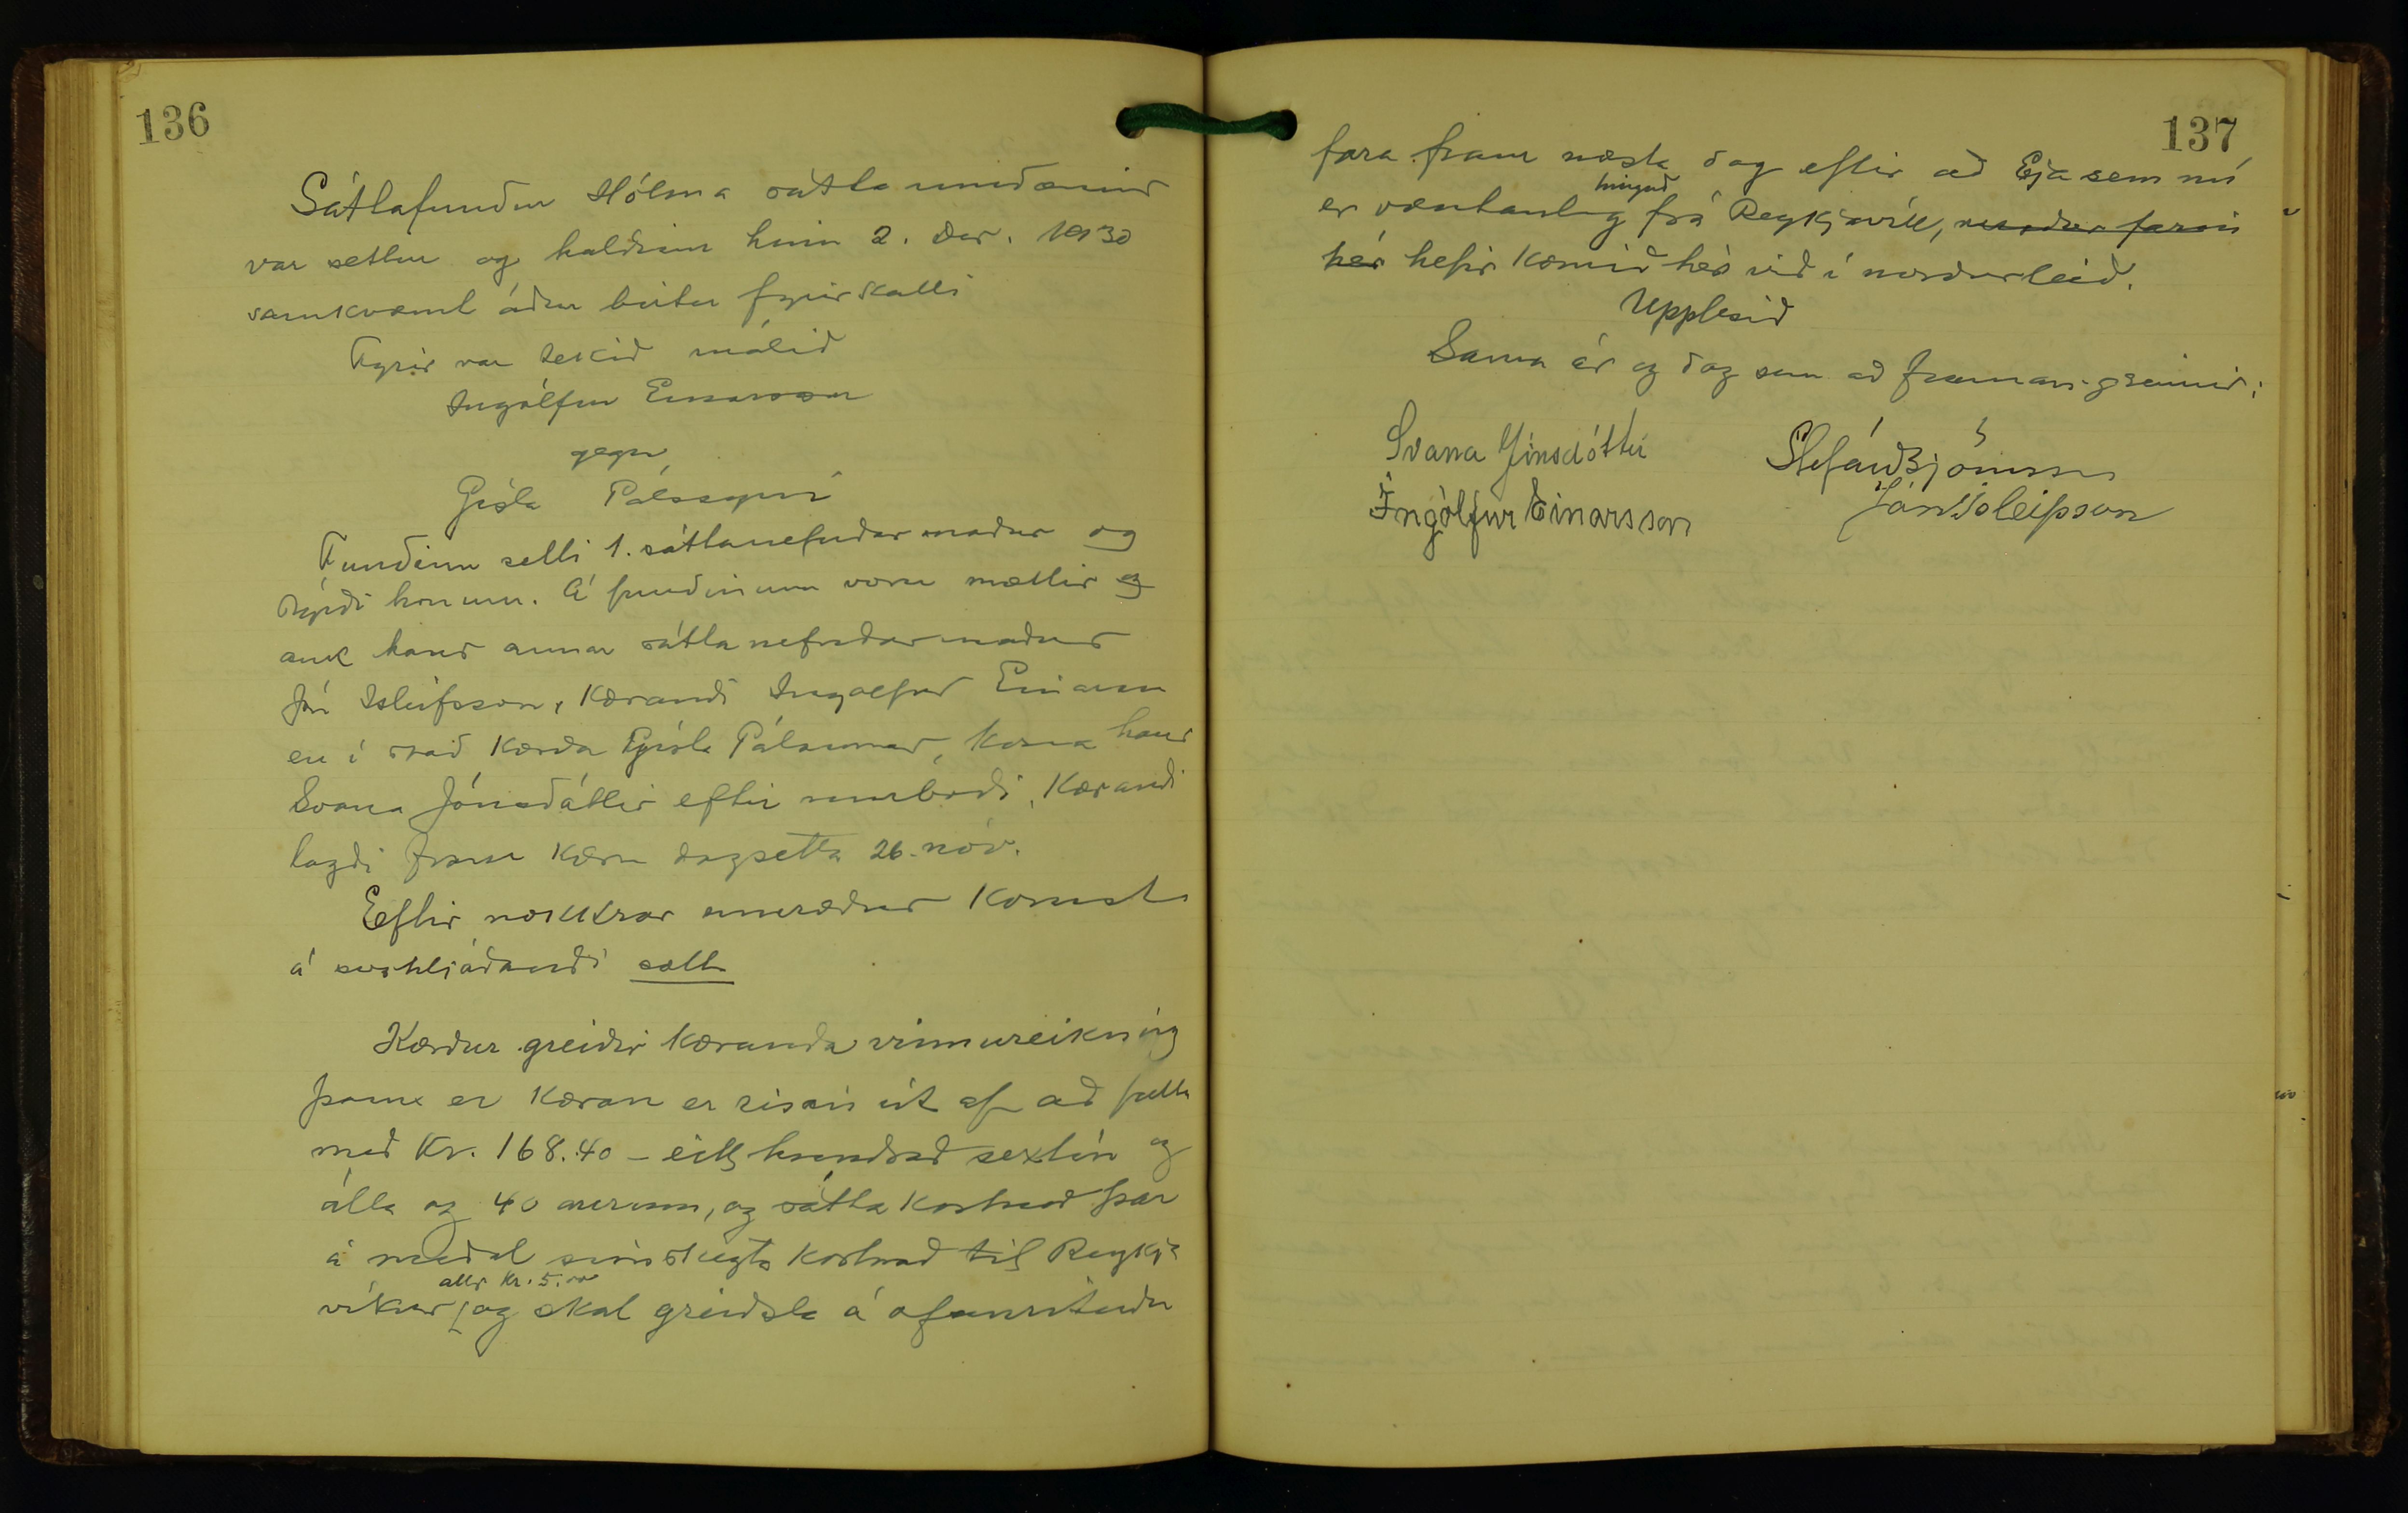 136
Sáttafundur Hólma sáttaumdæmis
var settur og haldinn hinn 2. des. 1930
samkvæmt áður birtu fyrirkalli
Fyrir var tekið málið
Ingólfur Einarsson
gegn
Gísla Pálssyni
Fundinn setti 1. sáttanefndarmaður og
stýrði honum. Á fundinum voru mættir og
auk hans annar sáttanefndarmaður
Jón Isleifsson, Kærandi Ingolfur Einarsson
en í stað Kærða Gísla Pálssonar, Kona hans
Svana Jónsdóttir eftir umboði, Kærandi
lagði fram Kæru dagsetta 26. nóv.
Eftir nokkrar umræður komst
á svohljóðandi sætt
Kærður greiðir kæranda vinnureikning
þann er Kæran er risin út af að fullu
með Kr. 168.40 – eitt hundrað sextíu og
átta og 40 aurum, og sátta kostnað þar
á meðal símskeyta kostnað til Reykja
allr Kr. 5.00
víkur, og skal greiðsla á ofanrituðu
137
fara fram næsta dag eftir að Esja sem nú
hingað
er væntanleg frá Reykjavík, farin
hér hefir komið hér við í norðurleið.
Upplesið
Sama ár og dag sem að framan greinir:
Svana Jónsdóttir Stefán Björnsson
Ingólfur Einarsson Jón Isleifsson